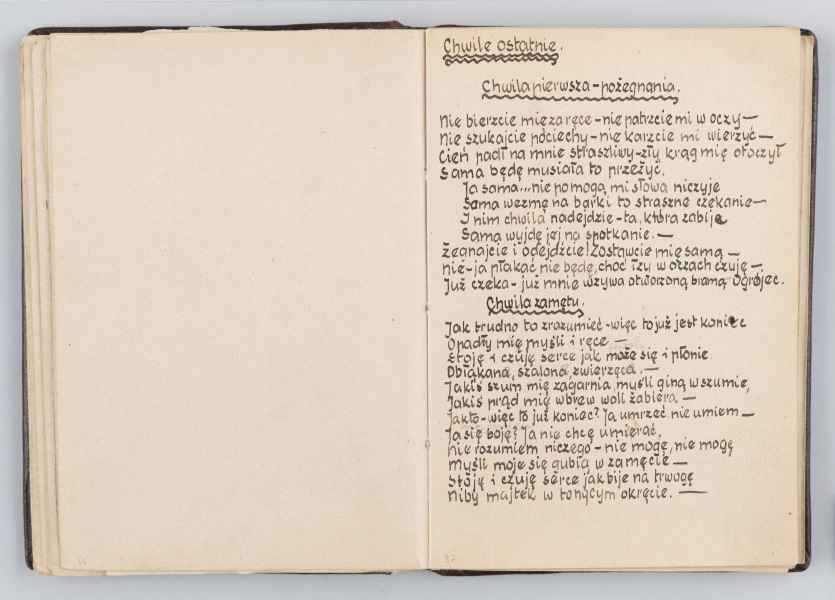 Chwile ostatnie.
Chwila pierwsza - pożegnania.
Nie bierzcie mię za ręce - nie patrzcie mi w oczy —
Nie szukajcie pociechy - nie karzcie mi wierzyć —
Cień padł na mnie straszliwy - zły krąg mię otoczył
Sama będę musiała to przeżyć.
Ja sama... nie pomogą mi słowa niczyje
Sama wezmę na barki to straszne czekanie —
I nim chwila nadejdzie - ta, która zabije
Sama wyjdę jej na spotkanie. —
Żegnajcie i odejdźcie! Zostawcie mię samą —
nie - ja płakać nie będę, choć łzy w oczach czuję —
Już czeka - już mnie wzywa otworzoną bramą Ogrójec.
Chwila zamętu.
Jak trudno to zrozumieć - więc to już jest koniec
Opadły mię myśli i ręce —
Stoję i czuję serce jak może się i płonie
Obłąkana, szalona, zwierzęca. —
Jakiś szum mię zagarnia, myśli giną w szumie,
Jakiś prąd mię wbrew woli zabiera —
Jakto - więc to już koniec? Ja umrzeć nie umiem —
Ja się boję? Ja nie chcę umierać.
nie rozumiem niczego - nie mogę, nie mogę
Myśli moje się gubią w zamęcie —
Stoję i czuję serce jak bije na trwogę
Niby majtek w tonącym okręcie. —
37